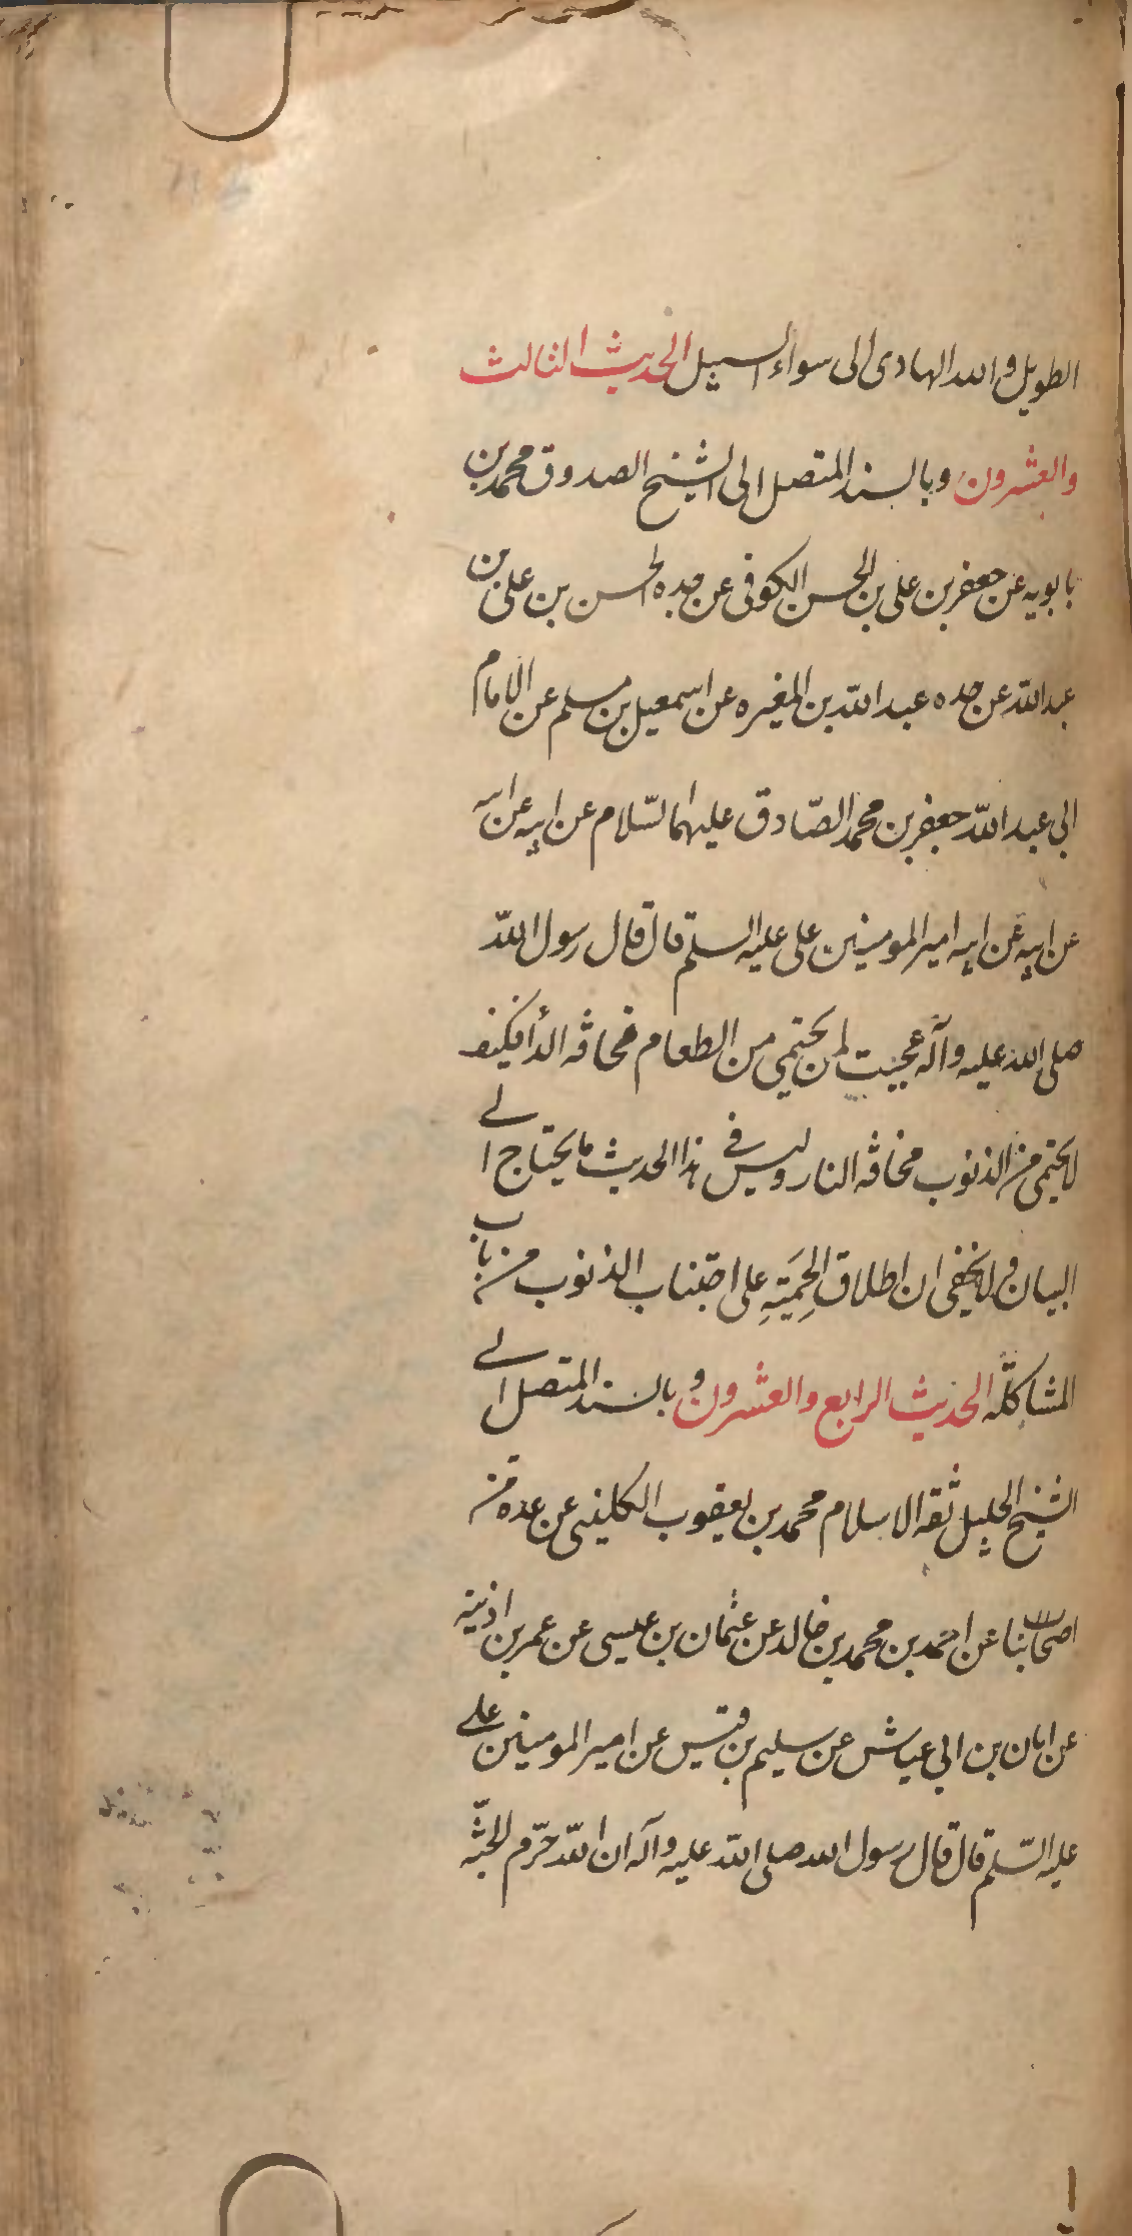 الطويل والله الهادى الى سواء السبيل الحديث الثالث
والعشرون وبالسند المتصل الى الشيخ الصدوق محمد بن
بابويه عن جعفر بن على بن الحسن الكوفى عن جده الحسن بن على بن
عبد الله عن جده عبد الله بن المغيره عن اسمعيل بن مسلم عن الامام
ابى عبد الله جعفر بن محمد الصّادق عليهما السّلام عن ابيه عن ابيه
عن ابيه عن ابيه امير المومنين على عليه السلم قال قال رسول الله
صلى الله عليه وآله عجبت لمن يحتمى من الطعام مخافه الدأ فكيف
لا يحتمى من الذنوب مخافه النار وليس فى هذا الحديث ما يحتاج الے
البيان ولا يخفى ان اطلاق الحِميَتِهِ على اجتناب الذنوب من باب
المشاكلة الحديث الرابع والعشرون وبالسند المتصل الے
الشيخ الجليل ثقه الاسلام محمد بن يعقوب الكلينى عن عده من
اصحابنا عن احمد بن محمد بن خالد عن عثمان بن عيسى عن عمر بن اذينه
عن ابان بن ابى عياش عن سليم بن قيس عن امير المومنين علے
عليه السّلم قال قال رسول الله صلى الله عليه وآله ان الله حرّم الجنّه